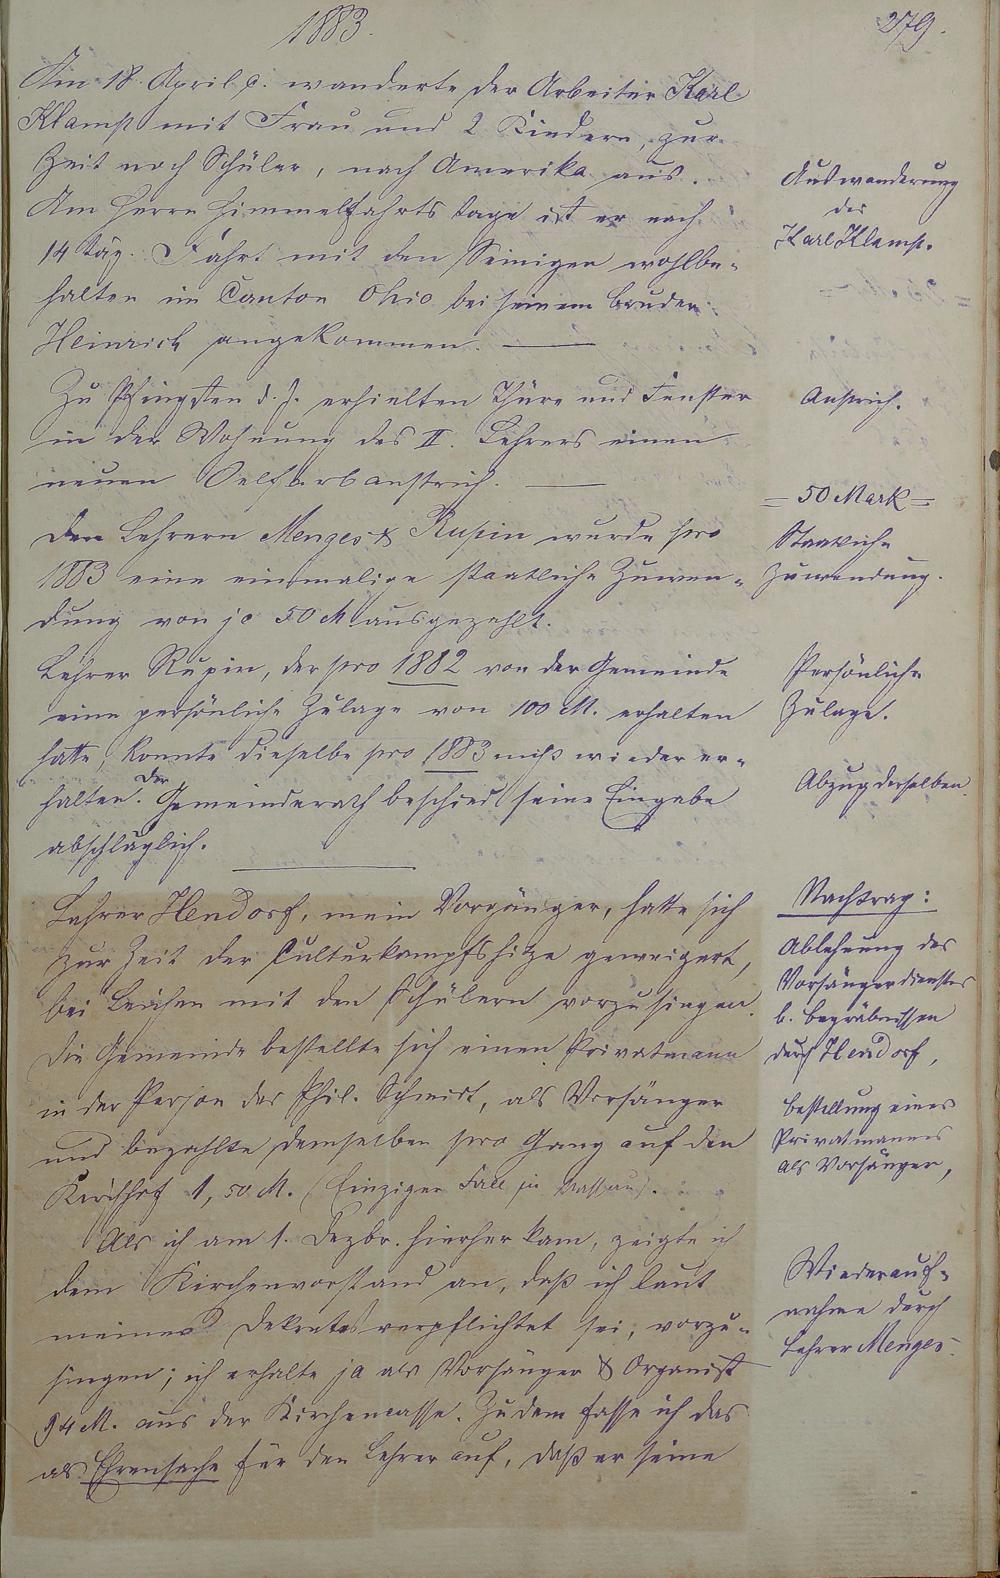 1883.
279.
Am 18. April c. wanderte der Arbeiter Karl
Klamp mit Frau und 2 Kindern, zur
Zeit noch Schüler, nach Amerika aus.
Am Herrn Himmelfahrtstage ist er nach
14 täg. Fahrt mit den Seinigen wohlbe-
halten im Canton Ohio bei seinem Bruder
Heinrich angekommen.
Auswanderung
des
Karl Klamp.
Zu Pfingsten d. J. erhielten Thüre und Fenster
in der Wohnung des II. Lehrers einen
neuen Oelfarbanstrich.
Anstrich.
Den Lehrern Menges & Rupin wurde pro
1883 eine einmalige staatliche Zuwen-
dung von je 50 M ausgezahlt.
= 50 Mark =
Staatliche
Zuwendung.
Lehrer Rupin, der pro 1882 von der Gemeinde
eine persönliche Zulage von 100 M. erhalten
hatte, konnte dieselbe pro 1883 nicht wieder er-
halten. Der Gemeinderath beschied seine Eingabe
abschläglich.
Persönliche
Zulage.
Abzug derselben.
Lehrer Hendorf, mein Vorgänger, hatte sich
zur Zeit der Culturkampfshitze geweigert,
bei Leichen mit den Schülern vorzusingen.
Die Gemeinde bestellte sich einen Privatmann
in der Person des Phil. Schmidt, als Vorsänger
und bezahlte demselben pro Gang auf den
Kirchhof 1,50 M. (Einziger Fall in Nassau).
Als ich am 1. Dezbr. hierher kam, zeigte ich
dem Kirchenvorstand an, daß ich laut
meines Dekretes verpflichtet sei, vorzu-
singen; ich erhalte ja als Vorsänger & Organist
94 M. aus der Kirchencasse. Zudem fasse ich das
als Ehrensache für den Lehrer auf, daß er seine
Nachtrag:
Ablehnung des
Vorsängerdienstes
b. Begräbnissen
durch Hendorf,
Bestellung eines
Privatmannes
als Vorsänger,
Wiederauf-
nahme durch
Lehrer Menges.